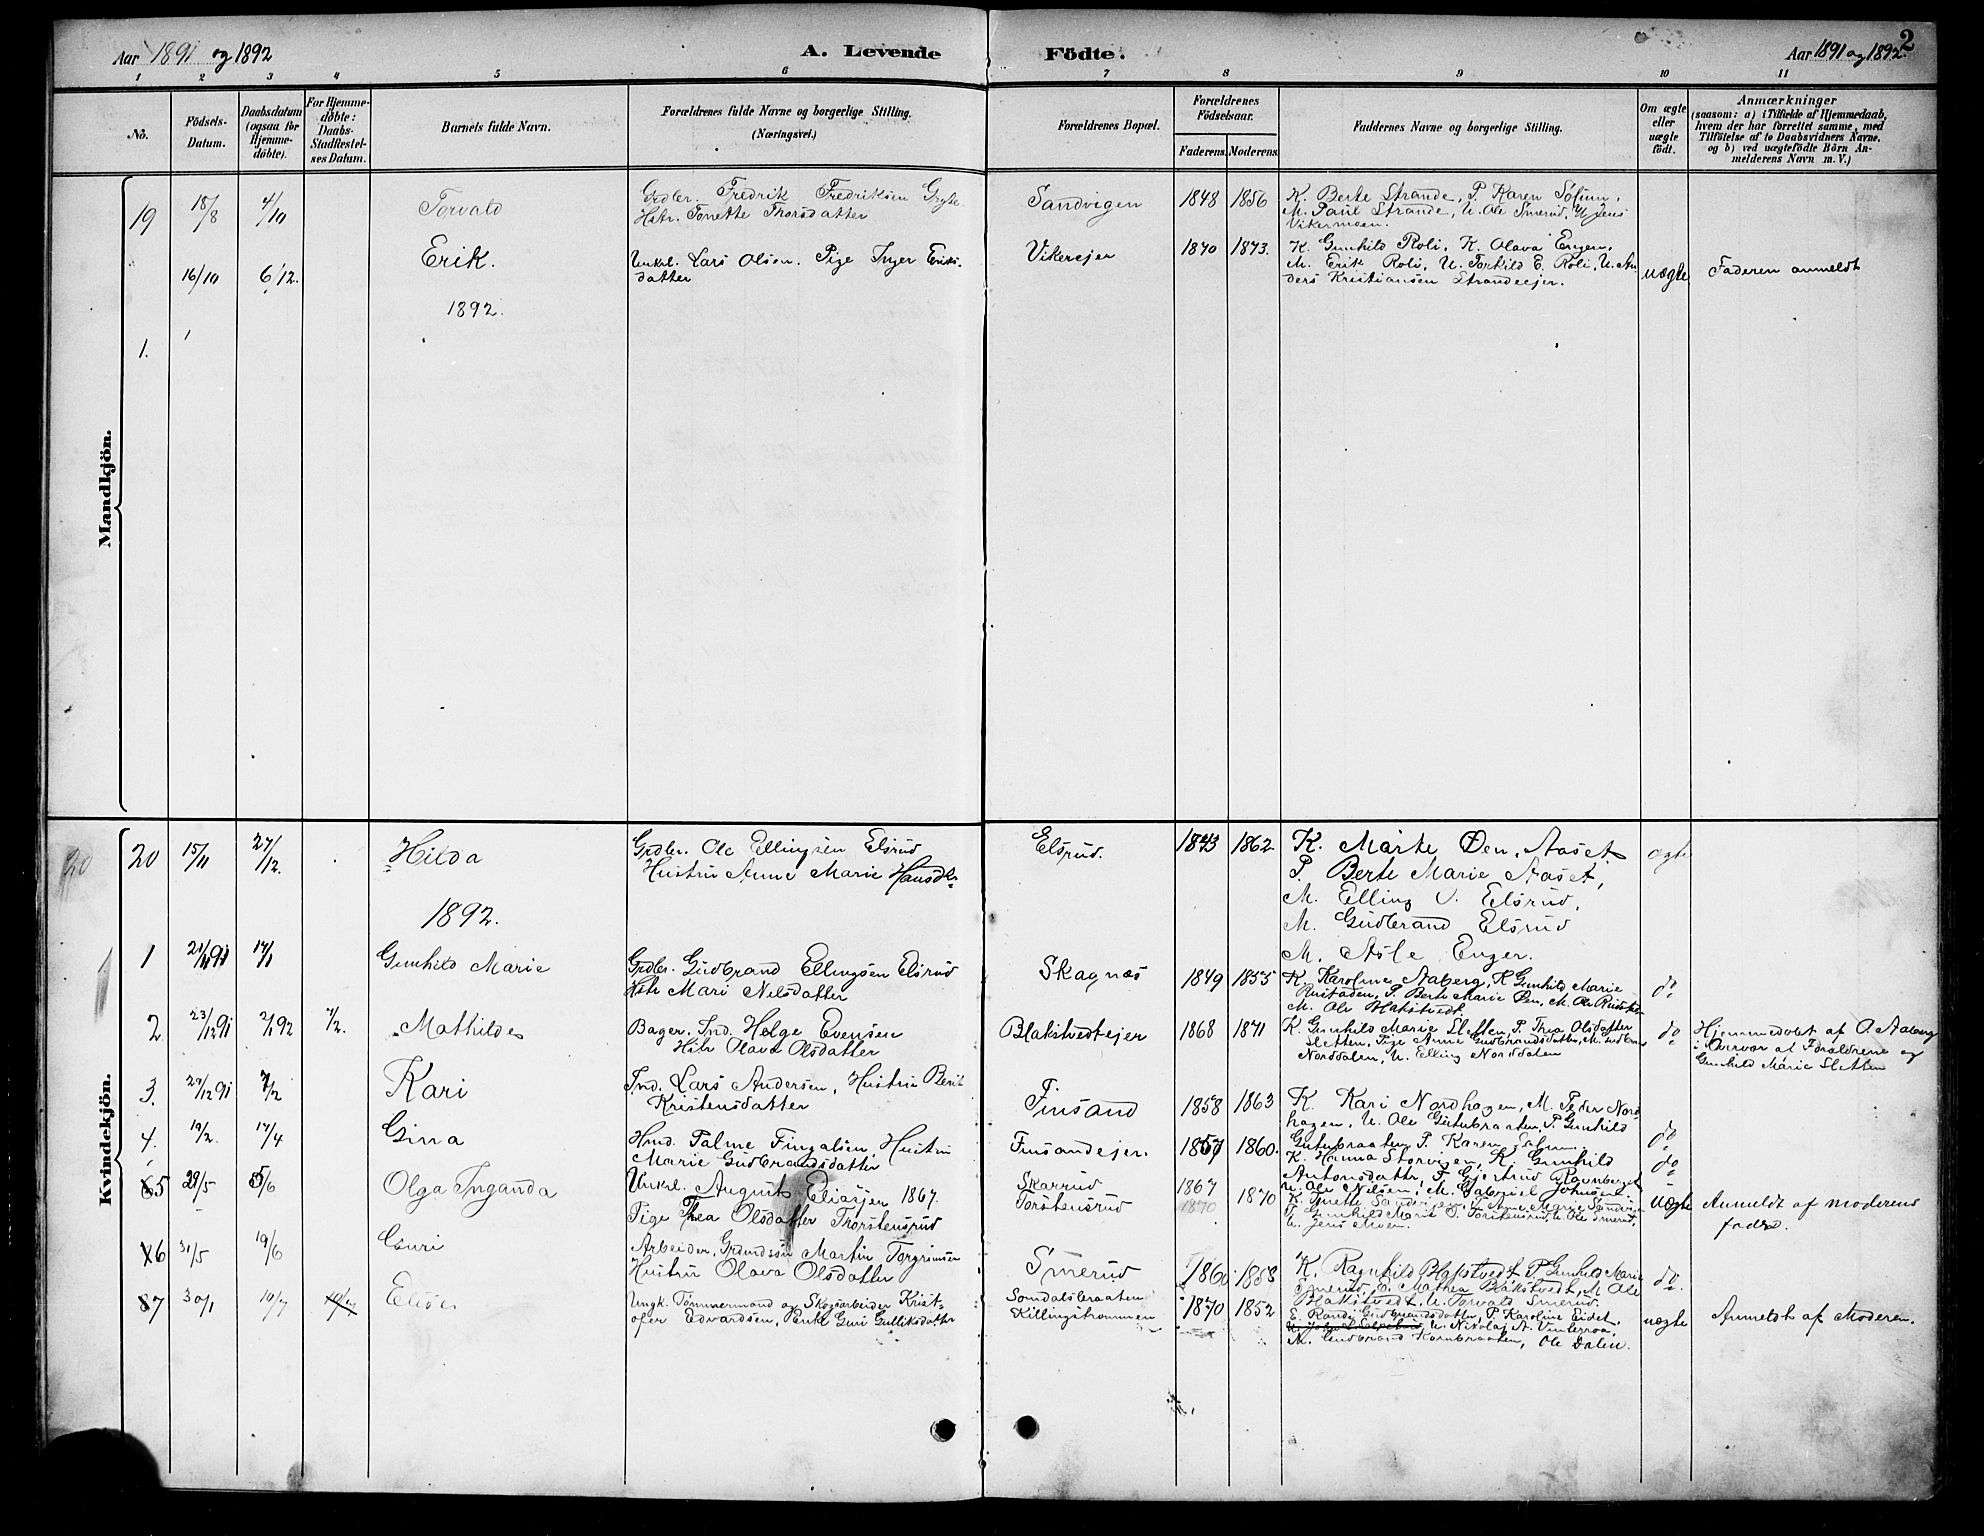 Aar 1891 og 1892
A. Levende Födte.
Aar 1891 og 1892.
2
1 2 3 4 5 6 7 8 9 10 11
No.
Födsels-Datum.
Daabsdatum (ogsaa for Hjemme-döbte).
For Hjemme-döbte: Daabs-Stadfestel-ses Datum.
Barnets fulde Navn.
Forældrenes fulde Navne og borgerlige Stilling.
(Næringsvei.)
Forældrenes Bopæl.
Forældrenes Födselsaar.
Faderens. Moderens.
Faddernes Navne og borgerlige Stilling.
Om ægte eller uægte födt.
Anmærkninger
(saasom: a) i Tilfælde af Hjemmedaab, hvem der har forrettet samme, med Tilföielse af to Daabsvidners Navne, og b) ved uægtefödte Börn An-melderens Navn m. V.)
Mandkjön.
19 18/8 4/10 Torvald
Grdbr. Fredrik Fredriksen
Hstr. Tonette Thorsdatter
Sandvigen 1848 1856
K. Berte Strande, P. Karen
M. Paul Strande, U. Ole Smerud, U. Jens
Vikermoen.
16/10 6/12. Erik.
Unkrl. Lars Olsen. Pige Inger Eriks-
datter
Vikerejer 1870 1873.
K. Gunhild Roli, K. Olava Engen,
M. Erik Roli, U. Torkild E. Roli, U. An
ders Kristiansen Strandeejer.
uægte Faderen anmeldt
1892.
1.
Kvindekjön.
20 15/11 27/12. Hilda
Grdbr. Ole Ellingsen Elsrud
Hustru Anne Marie Hansdtr
Elsrud. 1843 1862
K. Marte Øen, Aaset
P. Berte Marie Aaset,
M. Elling O. Elsrud,
M. Gudbrand Elsrud
M. Asle Enger.
ægte
1892.
1 21/11 91 17/1 Gunhild Marie
Grdbr. Gudbrand Ellingsen Elsrud
Hstr Mari Nilsdatter
Skagnæs 1849 1855
K. Karoline Aaberg, K Gunhild Marie
Rustaden, P. Berte Marie Øen, M. Ole
M. Ole Hakstvedt
do
2 23/12 91 2/1 92 7/2. Mathilde
Bager. Ind. Helge Evensen
Hstr Olava Olsdatter
Blakstvedtejer 1868 1871
K. Gunhild Marie Sletten, P. Thea Olsdatter
Sletten, Pige Anne Gudbrandsdatter, M. Gudbr
Norddalen, U. Elling Norddalen
do
Hjemmedøbt af O. Aaberg
i Overvær af Forældrene og
Gunhild Marie Sletten
3. 27/12 91 7/2 Kari
Ind. Lars Andersen, Hustru Berit
Kristensdatter
Finsand 1858 1863
K. Kari Nordhagen, M. Peder Nord
hagen, U. Ole Gutubraaten, P. Gunhild
Gutubraaten, P. Karen
do
4. 19/2. 17/4 Gina
Hmd. Palme Fingalsen, Hustru
Marie Gudbrandsdatter
Finsandejer. 1857 1860.
K. Hanna Storvigen, K. Gunhild
Antonsdatter, P. Gjertrud Ravnberget
U. Ole Nilsen, M. Gabriel Johnsen
do
5 28/5 5/6 Olga Inganda
Unkrl. August Eliasen 1867.
Pige Thea Olsdatter Thorstensrud
Skarrud
Torstensrud
1867 1870 1870
K. Tonette Sandvigen, K. Anne Marie Sandvig
P. Gunhild Marie O. Torstensrud, U. Ole Smerud,
U. Jens Moen.
uægte Anmeldt af moderens
fader.
6 31/5 19/6 Guri
Arbeider, Grdmdsøn Martin Torgrimsen
Hustru Olava Olsdatter
Smerud 1860 1858
K. Ragnhild Blakstvedt, P. Gunhild Marie
Smerud, P. Mathea Blakstvedt, M Ole
Blakstvedt, U. Torvald Smerud.
do
7 30/1 10/7 Elise
Ungk. Tømmermand og Skogsarbeider Krist-
ofer Edvardsen, Enke Guri Gulliksdatter
Somdalsbraaten
Killingstrømmen
1870 1852
E. Randi Gudbrandsdatter, P. Karoline Eidet,
U. Nikolai A. Vinterroa,
M. Gudbrand Kornbraaten, Ole Dalen.
uægte Anmeldt af Moderen.